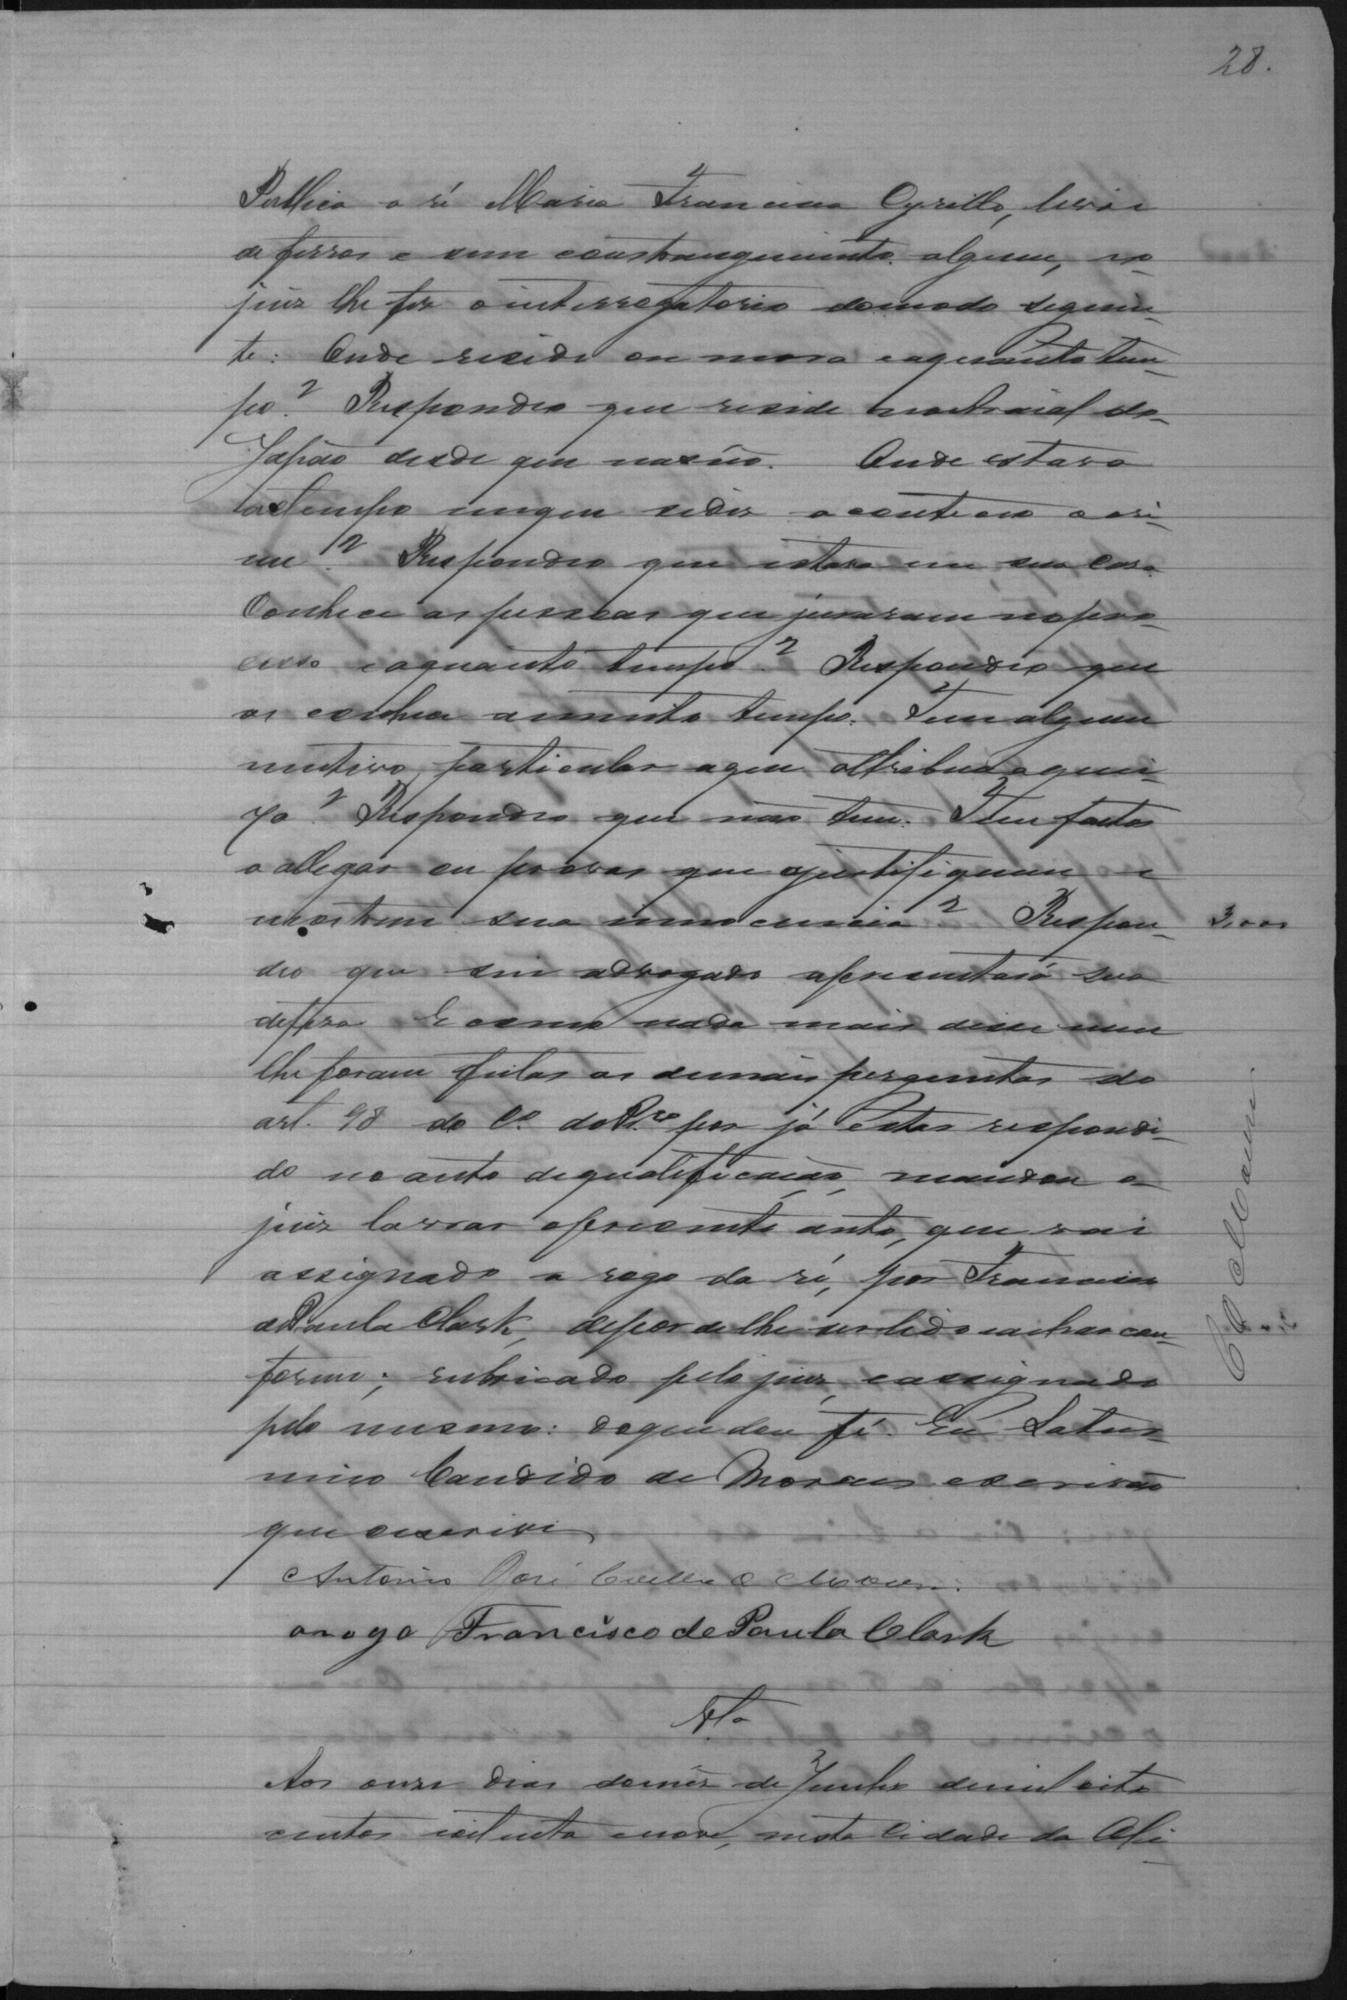 28.
Publica a ré Maria Francisca Cyrillo, livre
de ferros e sem constrangimento algum, o
juiz lhe fez o interrogatorio do modo seguin-
te: Onde reside ou mora e aquanto tem-
po? Respondeo que reside no arraial do
Japão desde que nasceo. Onde estava
ao tempo em que se diz aconteceo o cri-
me? Respondeo que estava em sua casa.
Conhece as pessoas que juraram no pro-
cesso e aquanto tempo? Respondeo que
os conhece a muito tempo. Tem algum
motivo particular a que attribua a quei-
xa? Respondeo que não tem. Tem factos
a allegar ou provas que a justifiquem e
mostrem sua innocencia? Respon-
3,000
deo que seu advogado apresentará sua
defesa. E como nada mais disse nem
lhe foram feitas as demais perguntas do
art. 98 do Co. do Pro. por já estar respondi-
do no auto de qualificação, mandou o
juiz lavrar o presente auto, que vai
assignado a rogo da ré, por Francisco
de Paula Clark, depois de lhe ser lido e achar con-
forme; rubricado pelo juiz, e assignado
pelo mesmo: do que dou fé. Eu Satur-
nino Candido de Moraes escrivão
que escrevi
Antonio José
arogo Francisco de Paula Clark
Aos onze dias do mês de Junho de mil oito
centos setenta e nove, nesta Cidade da Oli-